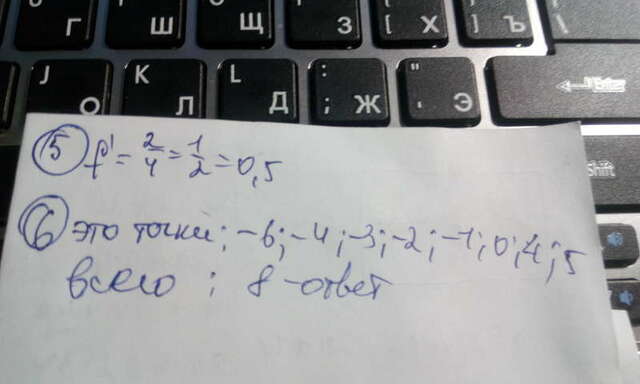 Г Ш Щ З [ Х ] Ъ \
J О K Л L Д : ; Ж " ' Э
Shift
5 f' = 2/4 = 1/2 = 0,5
6 это точки; -6; -4; -3; -2; -1; 0; 4; 5
всего; 8 - ответ